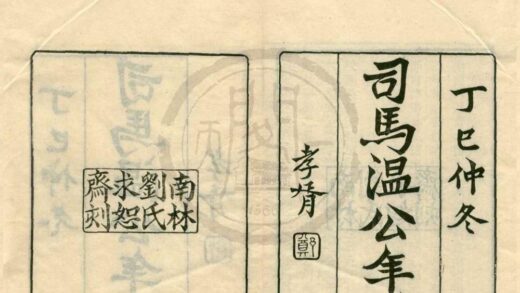 丁巳仲冬
司馬温公年
孝胥
鄭
南林
劉氏
求恕
齋刻